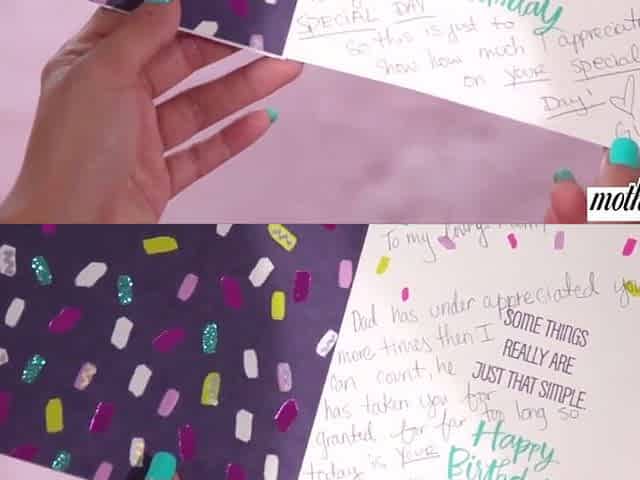 SPECIAL DAY
day
So this is just to
show how much I appreciate
on your special
Day!
moth
To my
Dad has under appreciated you
more times then I
can count, he
has taken you for
granted for far too long so
today is your
SOME THINGS
REALLY ARE
JUST THAT SIMPLE
Happy
Birthday